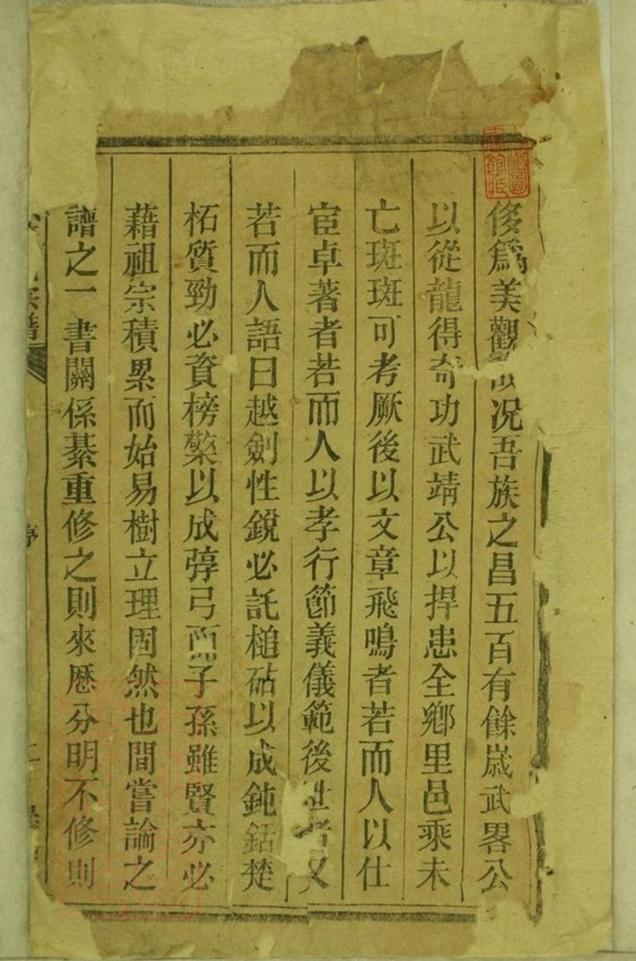 侈爲美觀況吾族之昌五百有餘歲武畧公
以從龍得奇功武靖公以捍患全鄉里邑乘未
亡斑斑可考厥後以文章飛鳴者若而人以仕
宦卓著者若而人以孝行節義儀範後世者又
若而人語曰越劍性銳必託槌砧以成鈍銛楚
柘質勁必資榜檠以成弴弓而子孫雖賢亦必
藉祖宗積累而始易樹立理固然也間嘗論之
譜之一書關係綦重修之則來歷分明不修則
族譜
序
二